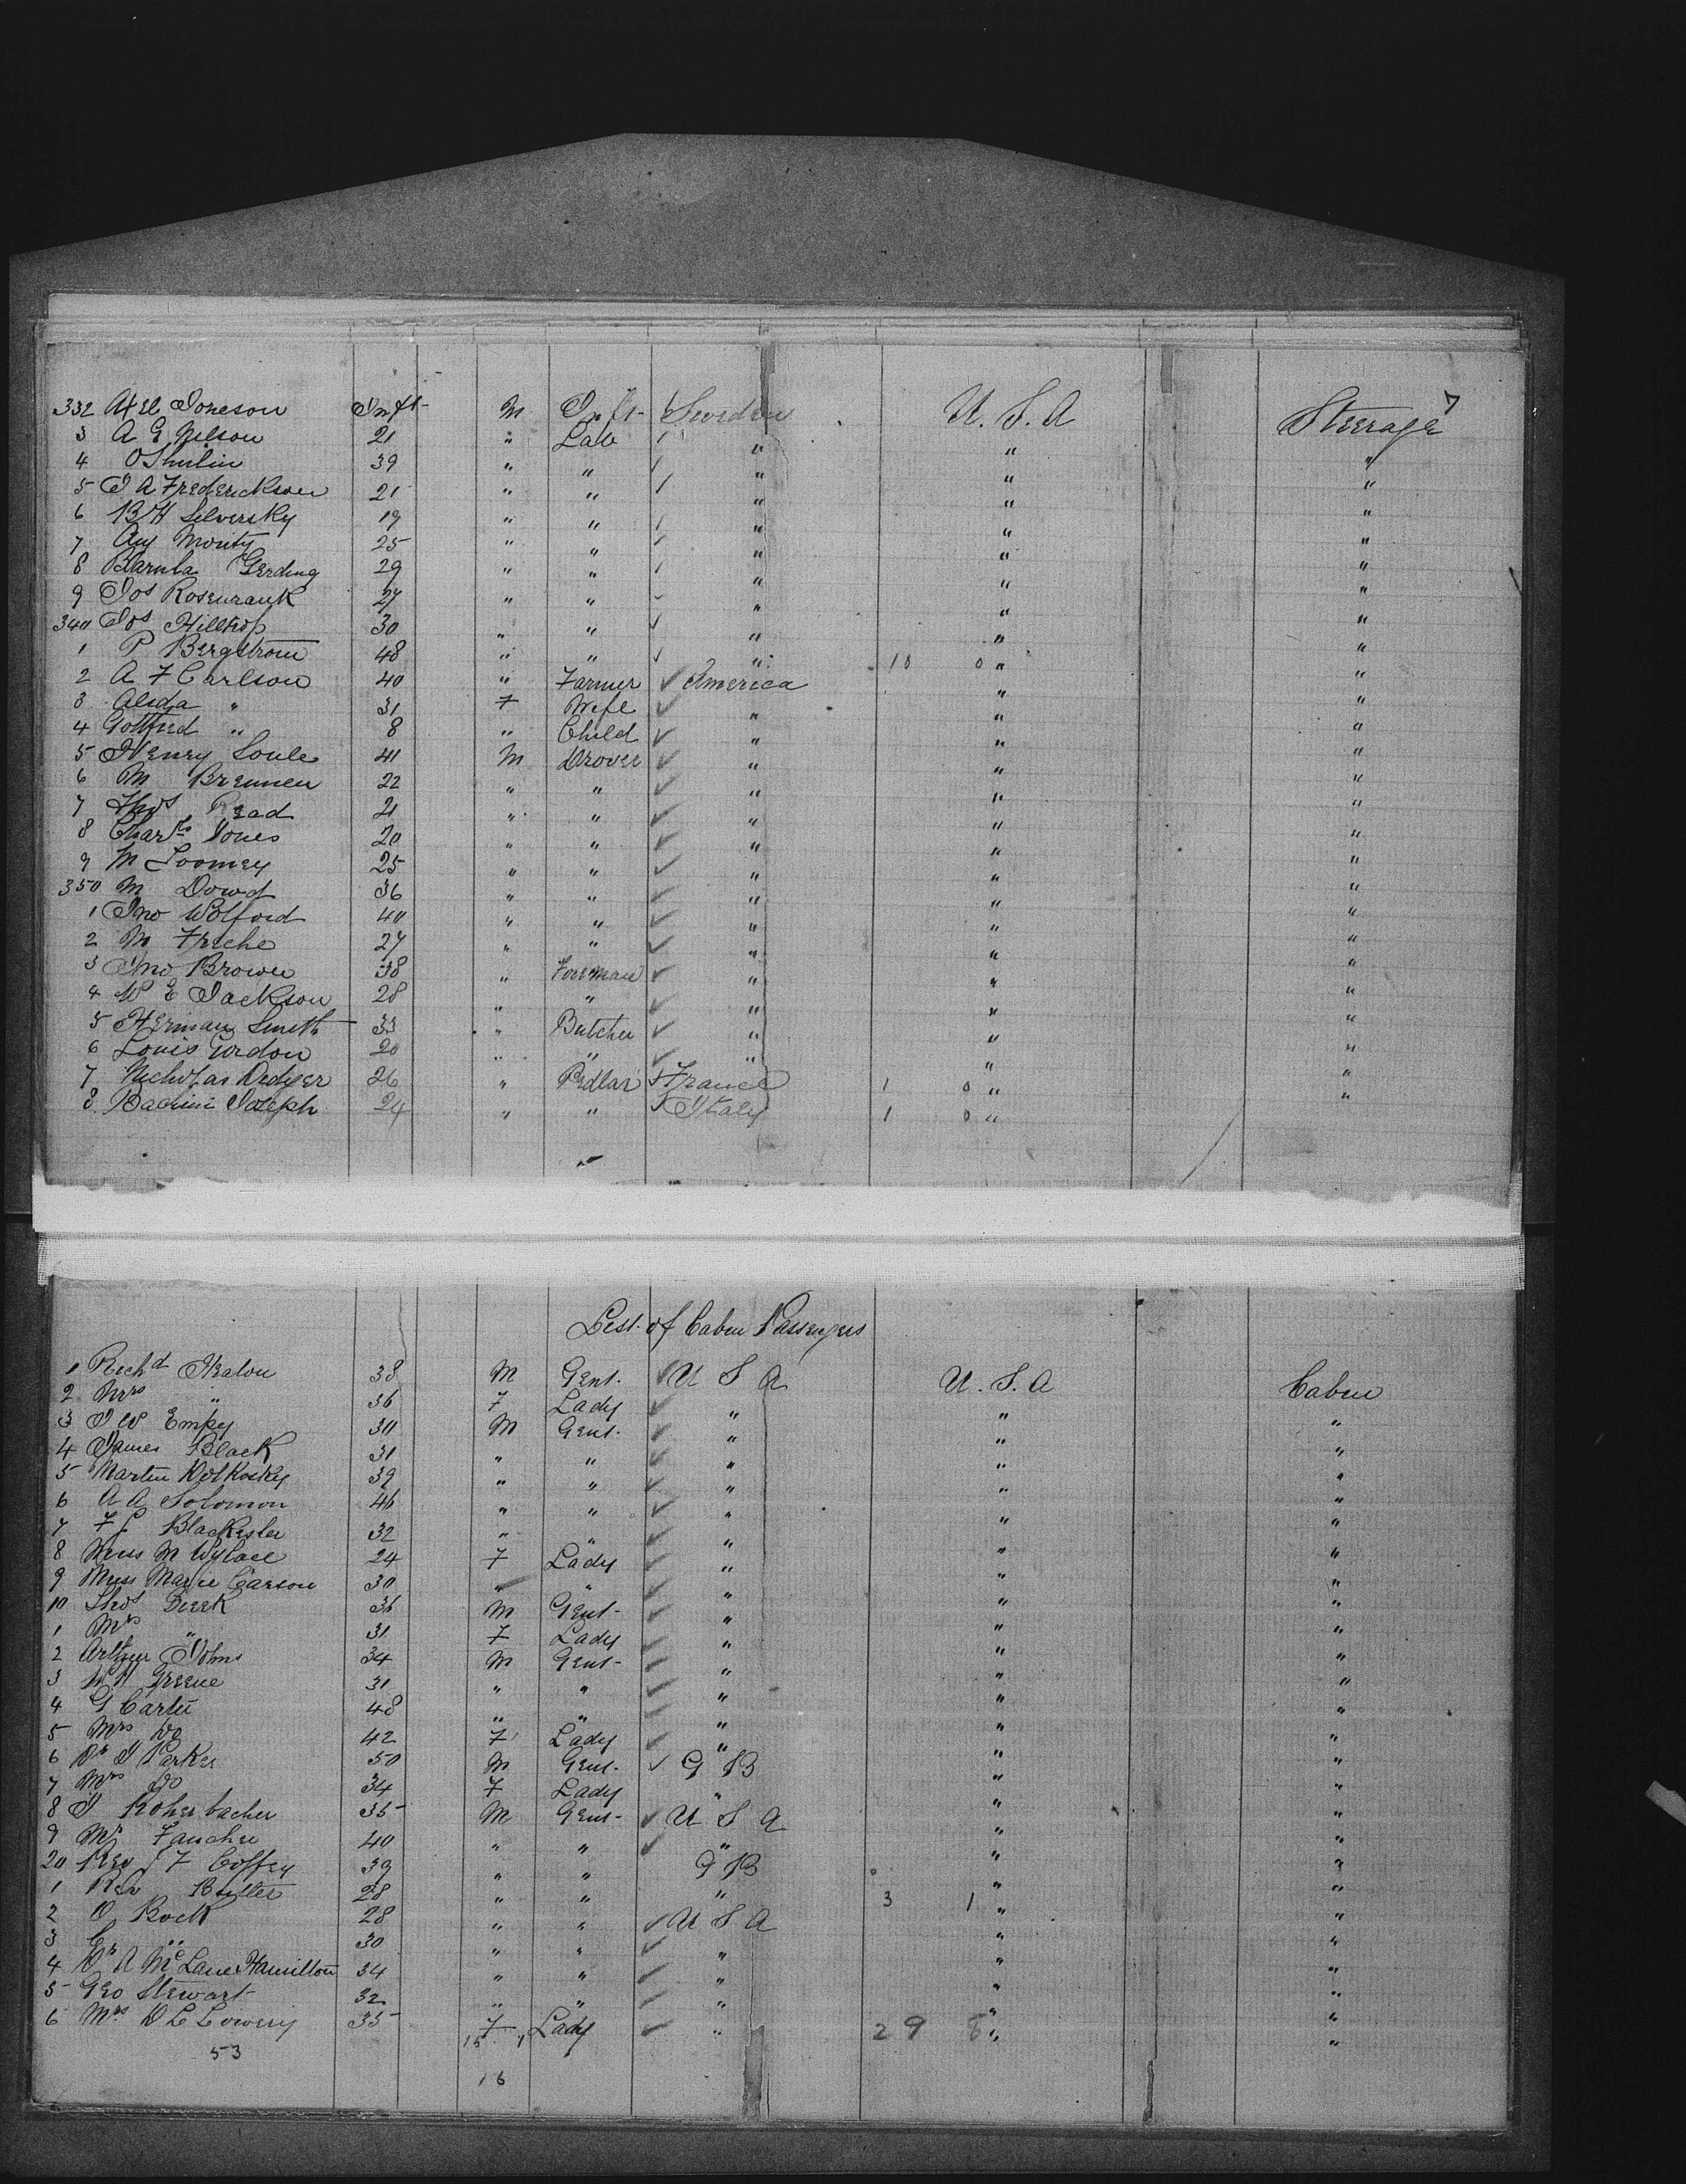 7
332 Axel Joneson Inft- M Inft- Sweden U. S. A Steerage
3 A G Nelson 21 " Lab " " "
4 O Thulin 39 " " " " "
5 J A Frederickson 21 " " " " "
6 B H Silversky 19 " " " " "
7 Aug 25 " " " " "
8 Gerding 29 " " " " "
9 Jos 27 " " " " "
340 Jos Hilltrop 30 " " " " "
1 P Bergstrom 48 " " " 10 0 " "
2 A F Carlson 40 " Farmer America " "
3 Alida " 31 F Wife " " "
4 Gottfried " 8 " Child " " "
5 Henry Soule 41 M Drover " " "
6 M Brennen 22 " " " " "
7 Thos Read 21 " " " " "
8 Charls Jones 20 " " " " "
9 M Toomey 25 " " " " "
350 M Dowd 36 " " " " "
1 Jno Wolford 40 " " " " "
2 M 27 " " " " "
3 Jno Brown 38 " Foreman " " "
4 W E Jackson 28 " " " " "
5 Herman Smith 33 " Butcher " " "
6 Louis Gordon 20 " " " " "
7 Nicholas 26 " Pedlar France 1 0 " "
8 Joseph 24 " " Italy 1 0 "
List of Cabin Passengers
1 Richd Heaton 38 M Gent. U S A U. S. A Cabin
2 Mrs " 36 F Lady " " "
3 J W Empy 30 M Gent. " " "
4 James Black 31 " " " " "
5 Martin 39 " " " " "
6 A A Solomon 46 " " " " "
7 32 " " " " "
8 Miss M 24 F Lady " " "
9 Miss Carson 30 " " " " "
10 Thos 36 M Gent- " " "
1 Mrs " 31 F Lady " " "
2 Arthur Johns 34 M Gent- " " "
3 Greene 31 " " " " "
4 G Carter 48 " " " " "
5 Mrs Do 42 F Lady " " "
6 Dr J Parker 50 M Gent. G B " "
7 Mrs Do 34 F Lady " " "
8 J Rohrbacher 35 M Gent- U S A " "
9 Mr 40 " " " " "
20 Rev J F Coffey 39 " " G B " "
1 Rev Butler 28 " " " 3 1 " "
2 O Bock 28 " " U S A " "
3 " 30 " " " " "
4 Dr A McLane Hamilton 34 " " " " "
5 Geo Stewart 32 " " " " "
6 Mrs D L Lowery 35 F Lady " 29 8 " "
53 15 1
16